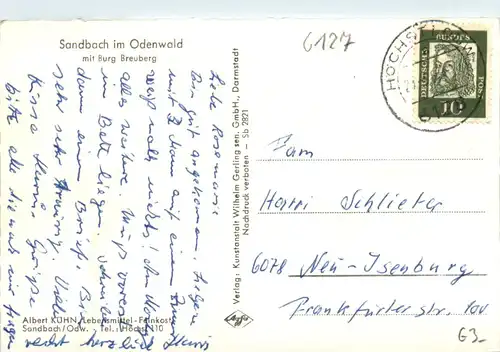 Sandbach im Odenwald
mit Burg Breuberg
6127
HÖCHST
DEUTSCHE BUNDESPOST
10
Liebe Rosemarie
gut angekommen. Liegen
mit 2 Mann auf einem Zimmer
weiß noch nicht!
alles weitere. Muß vorerst
im Bett liegen. Schreibe
dann einen Brief. Bin
sehr sehr traurig. Viele
Küsse Harri. Grüße
bitte alle die nach mir fragen
recht herzlich Harri
Verlag. Kunstanstalt Wilhelm Gerling sen. GmbH., Darmstadt
Nachdruck verboten — Sb 2821
Agfa
Fam
Harri Schlieter
6078 Neu-Isenburg
Frankfurter str. 100
Albert KÜHN Lebensmittel-Feinkost
Sandbach/Odw. - Tel.: Höchst 110
G3-